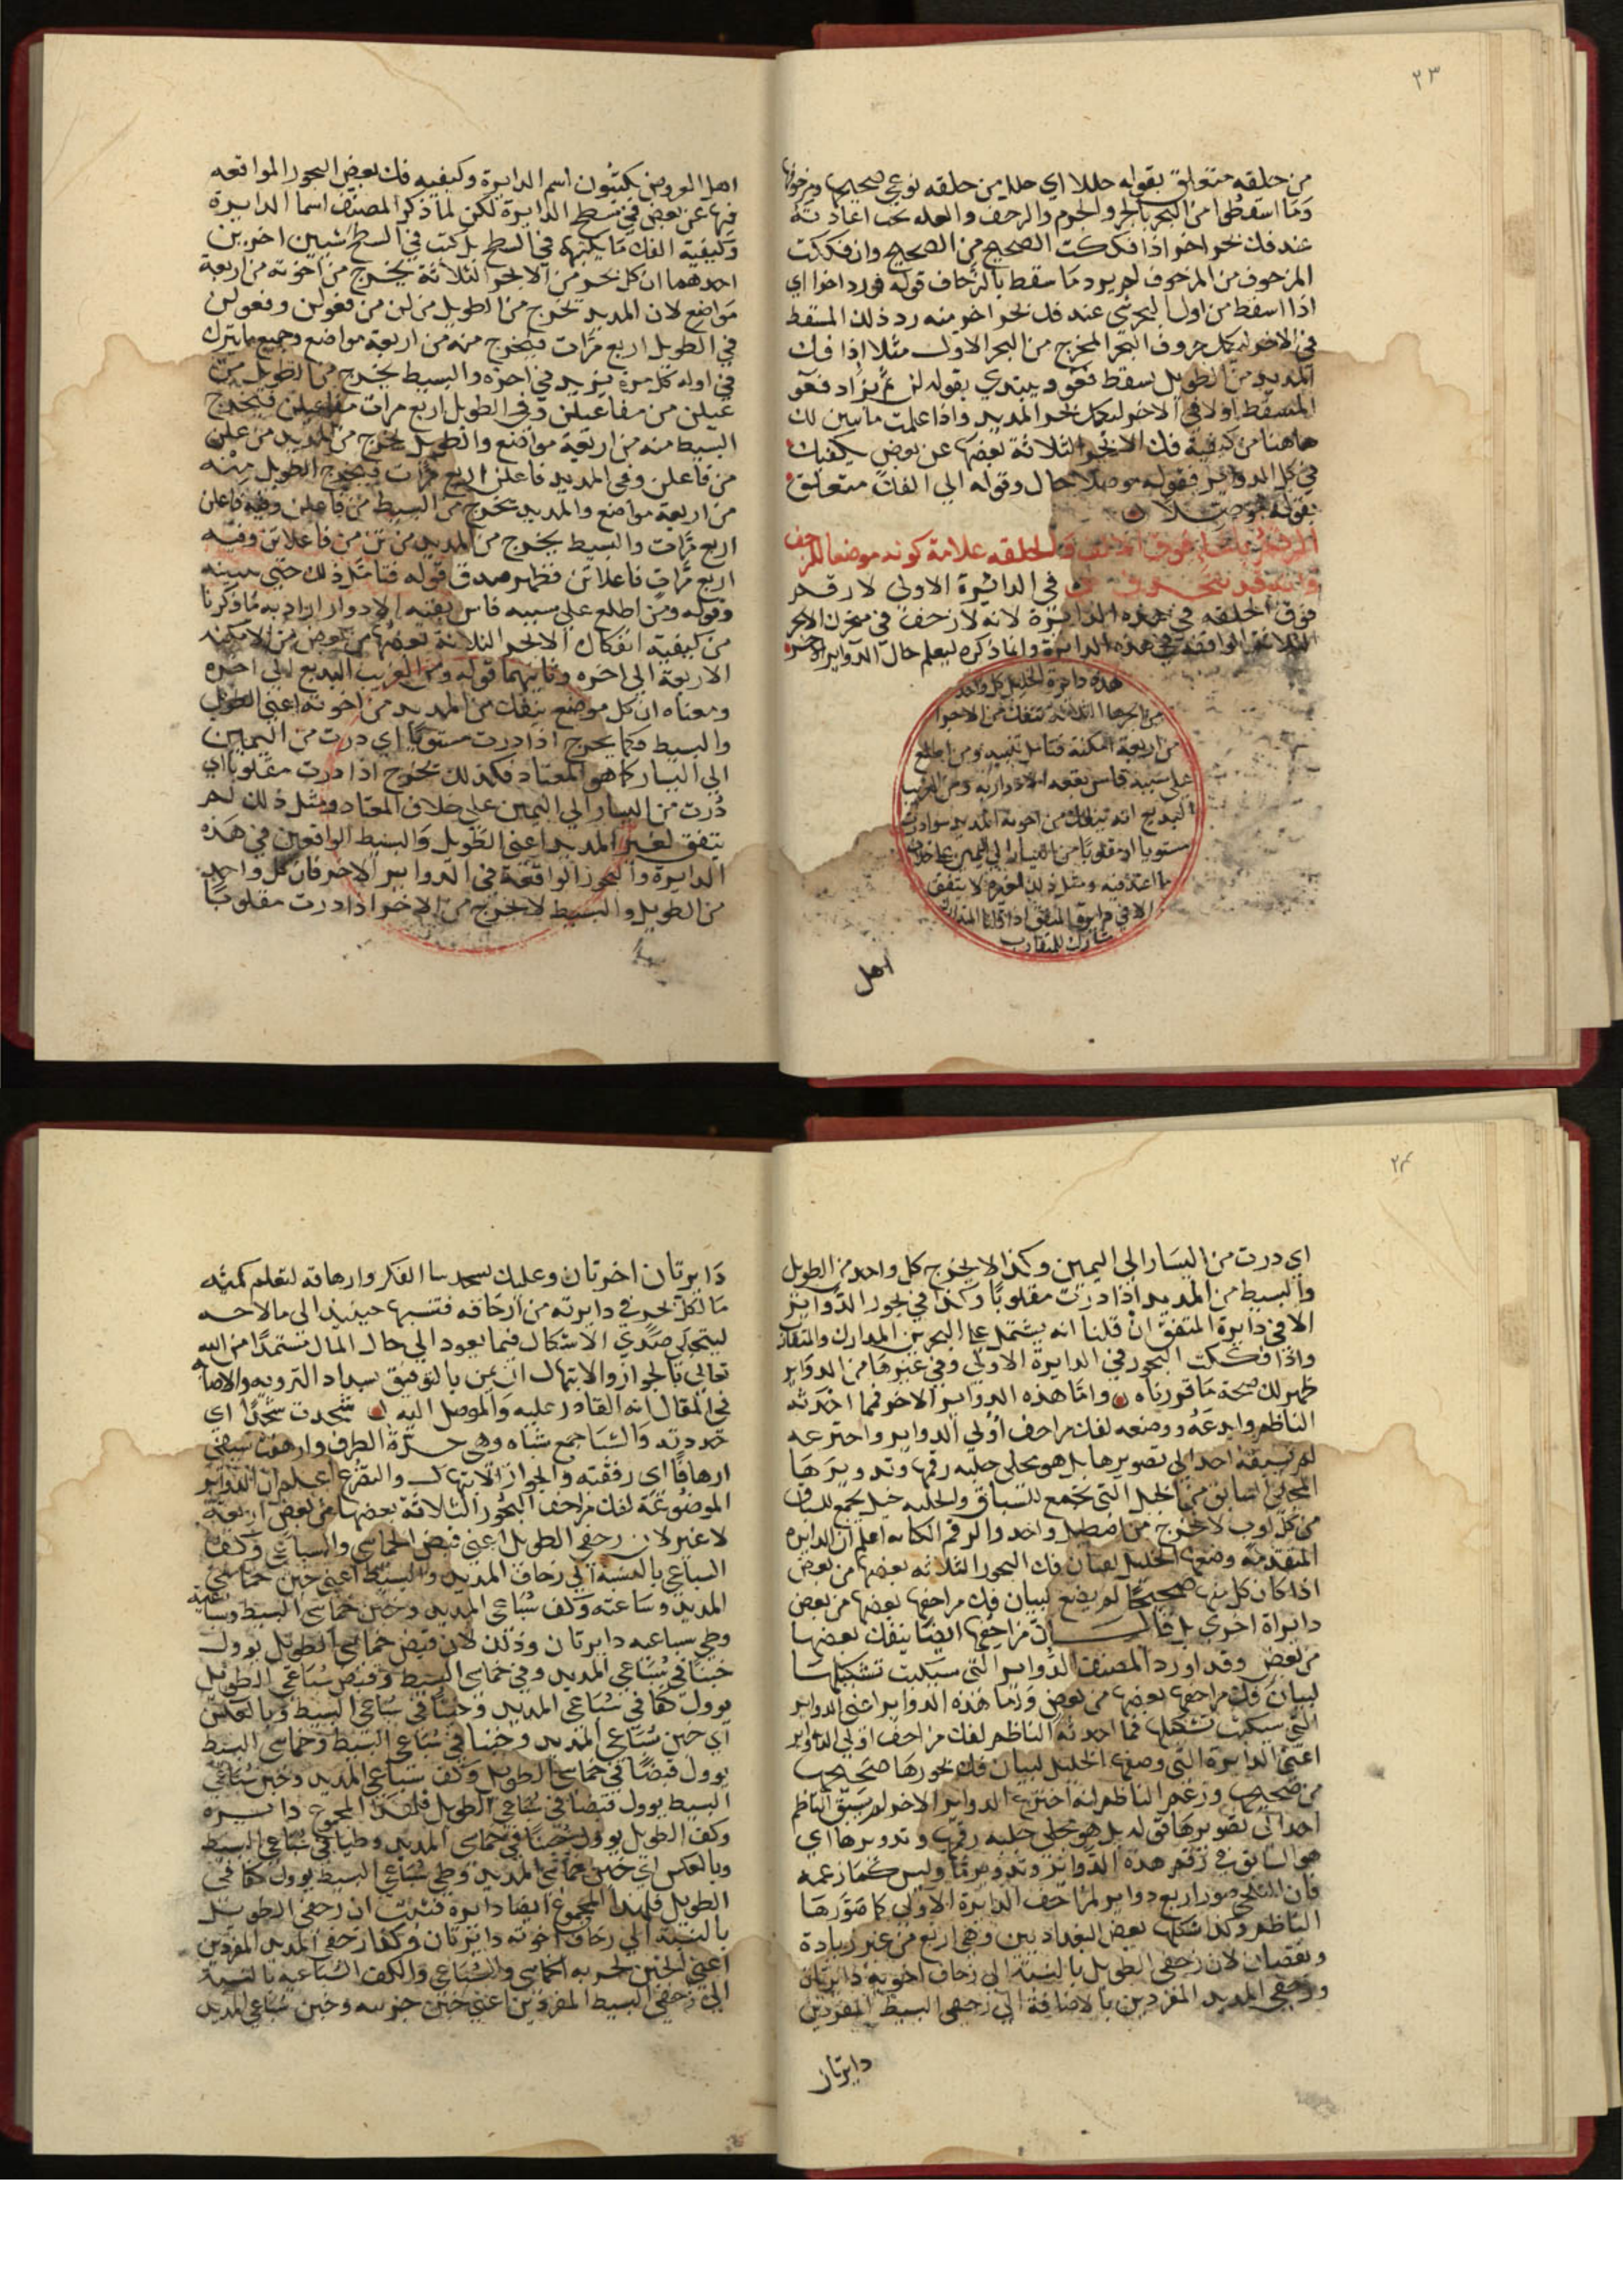 ٢٣
من حلقه متعلق بقوله حللا اي حللا من حلقه نوعي صحيحها ومزحوفها
وما اسقطوا من البحر بالجر والخرم والزحف والعله يجب اعادته
عند فك نحو اخر اذا فككت الصحيح من الصحيح وان فككت
المزحوف من المزحوف لم يرد ما سقط بالزحاف قوله فرد اخرا اي
اذا اسقط من اول البحر شي عند فك نحو اخر منه رد ذلك المسقط
في الاخر ليكمل حروف البحر المخرج من البحر الاول مثلا اذا فك
المديد من الطويل يسقط فعو ويبتدي بقوله لن ثم يزاد فعو
المسقط اولا في الاخر ليكمل بحر المديد واذا علمت ما تبين لك
هاهنا من كيفية فك الابحر الثلاثة بعضها عن بعض يكفيك
في كل الدواير فقوله موصلا حال وقوله الي الفك متعلق
بقوله موصلا
فوق الحلقه علامة كونه موضعا للزحف
في الدائرة الاولي لا رقم
فوق الحلقه في هذه الدايرة لانه لا زحف في
الثلاثة الواقعة في هذه الدايرة وانما ذكره ليعلم حال الدواير الاخر
هذه دايرة الخليل كل واحد
من ابحرها الثلاثة تنفك من الاخرا
من اربعة امكنة فتامل تنبيه ومن اطلع
علي سببه قاس بقيه الادوار به ومن الغريب
البديع انه ينفك من اخوته المديد سوا درت
مستويا او مقلوبا من اليسار الي اليمين علي خلاف
ما اعتد فيه ومثل ذلك لغيره لا يتفق
الا في دايرة المتفق اذا قلنا المتدارك
مشارك للمتقارب
اهل
اهل العروض يكتبون اسم الدايرة وكيفيه فك بعض البحور الواقعه
فيها عن بعض في سطح الدايرة لكن لما ذكر المصنف اسما الدايرة
وكيفية الفك ما يكتبها في السطح بل كتب في السطح شيين اخرين
احدهما ان كل بحر من الابحر الثلاثة يخرج من اخوته من اربعة
مواضع لان المديد تخرج من الطويل من لن من فعولن وفعولن
في الطويل اربع مرات فيخرج منه من اربعة مواضع وجميع ما يترك
في اوله كل مرة يزيد في اخره والبسيط يخرج من الطويل من
عيلن من مفاعيلن وفي الطويل اربع مرات مفاعيلن فيخرج
البسيط منه من اربعة مواضع والطويل يخرج من المديد من علن
من فاعلن وفي المديد فاعلن اربع مرات فيخرج الطويل منه
من اربعة مواضع والمديد يخرج من البسيط من فاعلن وفيه فاعلن
اربع مرات والبسيط يخرج من المديد من تن من فاعلاتن وفيه
اربع مرات فاعلاتن فظهر صدق قوله فتامل ذلك حتي
وقوله ومن اطلع علي سببه قاس بقيه الادوار اراد به ما ذكرنا
من كيفية انفكاك الابحر الثلاثة بعضها من بعض من الامكنه
الاربعة الي اخره وثانيهما قوله ومن الغريب البديع الي اخره
ومعناه ان كل موضع ينفك من المديد من اخوته اعني الطويل
والبسيط فكما يخرج اذا درت مستويا اي درت من اليمين
الي اليسار كما هو المعتاد فكذلك تخرج اذا درت مقلوبا اي
درت من اليسار الي اليمين علي خلاف المعتاد ومثل ذلك لم
يتفق لغير المديد اعني الطويل والبسيط الواقعين في هذه
الدايرة والبحور الواقعة في الدواير الاخر فان كل واحد
من الطويل والبسيط لا يخرج من الاخر اذا درت مقلوبا
٢٤
اي درت من اليسار الي اليمين وكذا لا يخرج كل واحد من الطويل
والبسيط من المديد اذا درت مقلوبا وكذا في بحور الدواير
الا في دايرة المتفق ان قلنا انه يشتمل علي البحرين المدارك والمتقارب
واذا فككت البحور في الدايرة الاولي وفي غيرها من الدواير
ظهر لك صحة ما قررناه واما هذه الدواير الاخر فمما احدثه
الناظم وابدعه ووضعه لفك مزاحف اولي الدواير واخترعه
لم يسبقه احد الي تصويرها بل هو مجلي حلبه رقمها وتدويرها
المجلي السابق من الخيل التي تجمع للسباق والحلبه خيل تجمع للسباق
من كل اوب لا تخرج من اصطبل واحد والرقم الكتابه اعلم ان الدايره
المتقدمة وضعها الخليل لبيان فك البحور الثلاثه بعضها من بعض
اذا كان كل منها صحيحا لم يضع لبيان فك مزاحفها بعضها من بعض
دايراة اخري بل قال ان مزاحفها ايضا ينفك بعضها
من بعض وقد اورد المصنف الدواير التي سيكتب تشكيلها
لبيان فك مزاحفها بعضها من بعض واما هذه الدواير اعني الدواير
التي سيكتب تشكيل فما احدثه الناظم لفك مزاحف اولي الدواير
اعني الدايرة التي وضعها الخليل لبيان فك بحورها صحيحها
من صحيحها وزعم الناظم انه اخترع الدواير الاخر لم يسبق الناظم
احد الي تصويرها قوله بل هو مجلي حلبه رقمها وتدويرها اي
هو السابق في رقم هذه الدواير وتدويرها وليس كما زعمه
فان صور اربع دواير لمزاحف الدايرة الاولي كما صورها
الناظم وكذا شكلها بعض البغداديين وهي اربع من غير زيادة
ونقصان لان زحفي الطويل بالنسبة الي زحاف اخويه دايرتان
وزحفي المديد المفردين بالاضافة الي زحفي البسيط المفردين
دايرتان
دايرتان اخرتان وعليك الفكر وارهافه لتعلم كميته
ما لكل بحر في دايرته من ازحافه فتنبها حينيذ الي
لينجلي صدي الاشكال فيما يعود الي حال المال مستمدا من الله
تعالي بالجوار والابتهال ان يمن بالتوفيق بسداد الترويه والاصابة
في المقال انه القادر عليه والموصل اليه شحذت شحذا اي
حددته والشبا جمع شباه وهي حدة الطرف وارهفت سيفي
ارهافا اي رفقته والجوار الابتهال والتضرع اعلم ان الدواير
الموضوعة لفك مزاحف البحور الثلاثة بعضها من بعض اربعة
لا غير لان زحفي الطويل اعني قبض الخماسي والسباعي وكف
السباعي بالنسبة الي زحاف المديد والبسيط اعني خبن خماسي
المديد وسباعيه وكف سباعي المديد وخبن خماسي البسيط وسباعيه
وطي سباعيه دايرتان وذلك لان قبض خماسي الطويل يوول
خبنا في سباعي المديد وفي خماسي البسيط وقبض سباعي الطويل
يوول كفا في سباعي المديد وخبنا في سباعي البسيط وبالعكس
اي خبن سباعي المديد وخبنا في سباعي البسيط وخماسي البسيط
يوول قبضا في خماسي الطويل وكف سباعي المديد وخبن سباعي
البسيط يوول قبضا في سباعي الطويل فلهذا المجموع دايره
وكف الطويل يوول خبنا في خماسي المديد وطيا في سباعي البسيط
وبالعكس اي خبن خماسي المديد وطي سباعي البسيط يوول كفا في
الطويل فلهذا المجموع ايضا دايرة فثبت ان زحفي الطويل
بالنسبة الي زحاف اخوته دايرتان وكذا زحفي المديد المفردين
اعني الخبن لجزيه الخماسي والسباعي والكف السباعيه بالنسبة
الي زحفي البسيط المفردين اعني خبن جزييه وخبن سباعي المديد